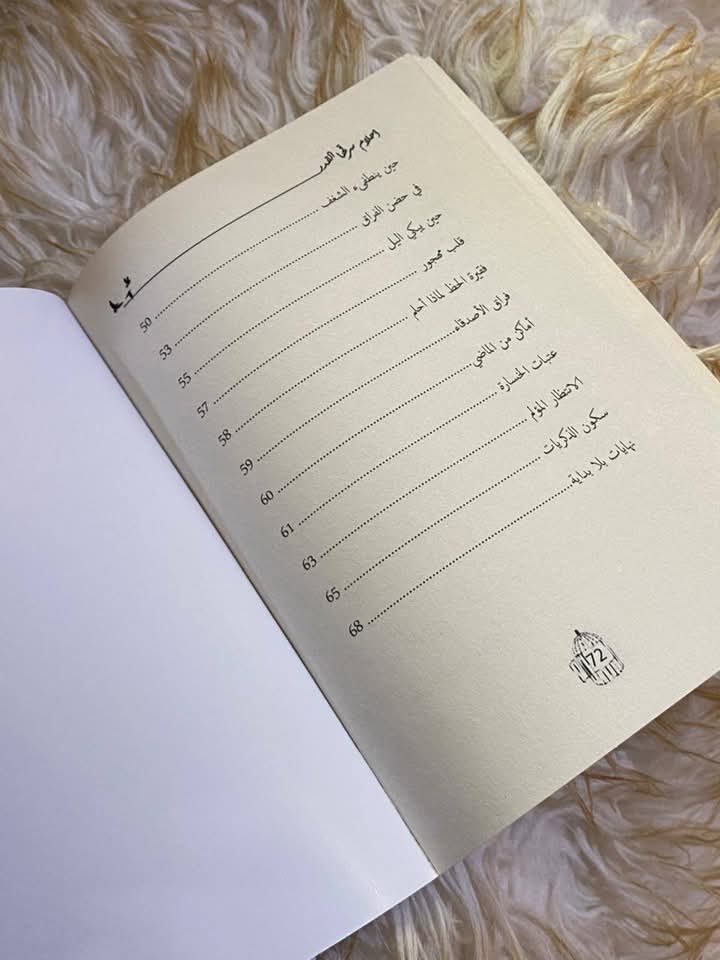 احلام سرقها القدر
حين ينطفىء الشغف 50
في حضن الفراق 53
حين يبكي اليل 55
قلب مهجور 57
فقيرة الحظ لماذا أحلم 58
فراق الأصدقاء 59
أماكن من الماضي 60
عتبات الخسارة 61
الانتظار المؤلم 63
سكون الذكريات 65
نهايات بلا بداية 68
72